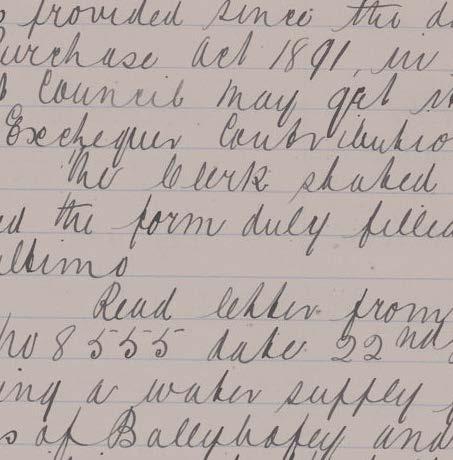 provided since the d
Purchase Act 1891, in
Council may get
Exchequer Contributio
The Clerk stated
ed the form duly filled
ultimo
Read letter from
No 8555 date 22nd
ing a water supply
s of Ballybofey and